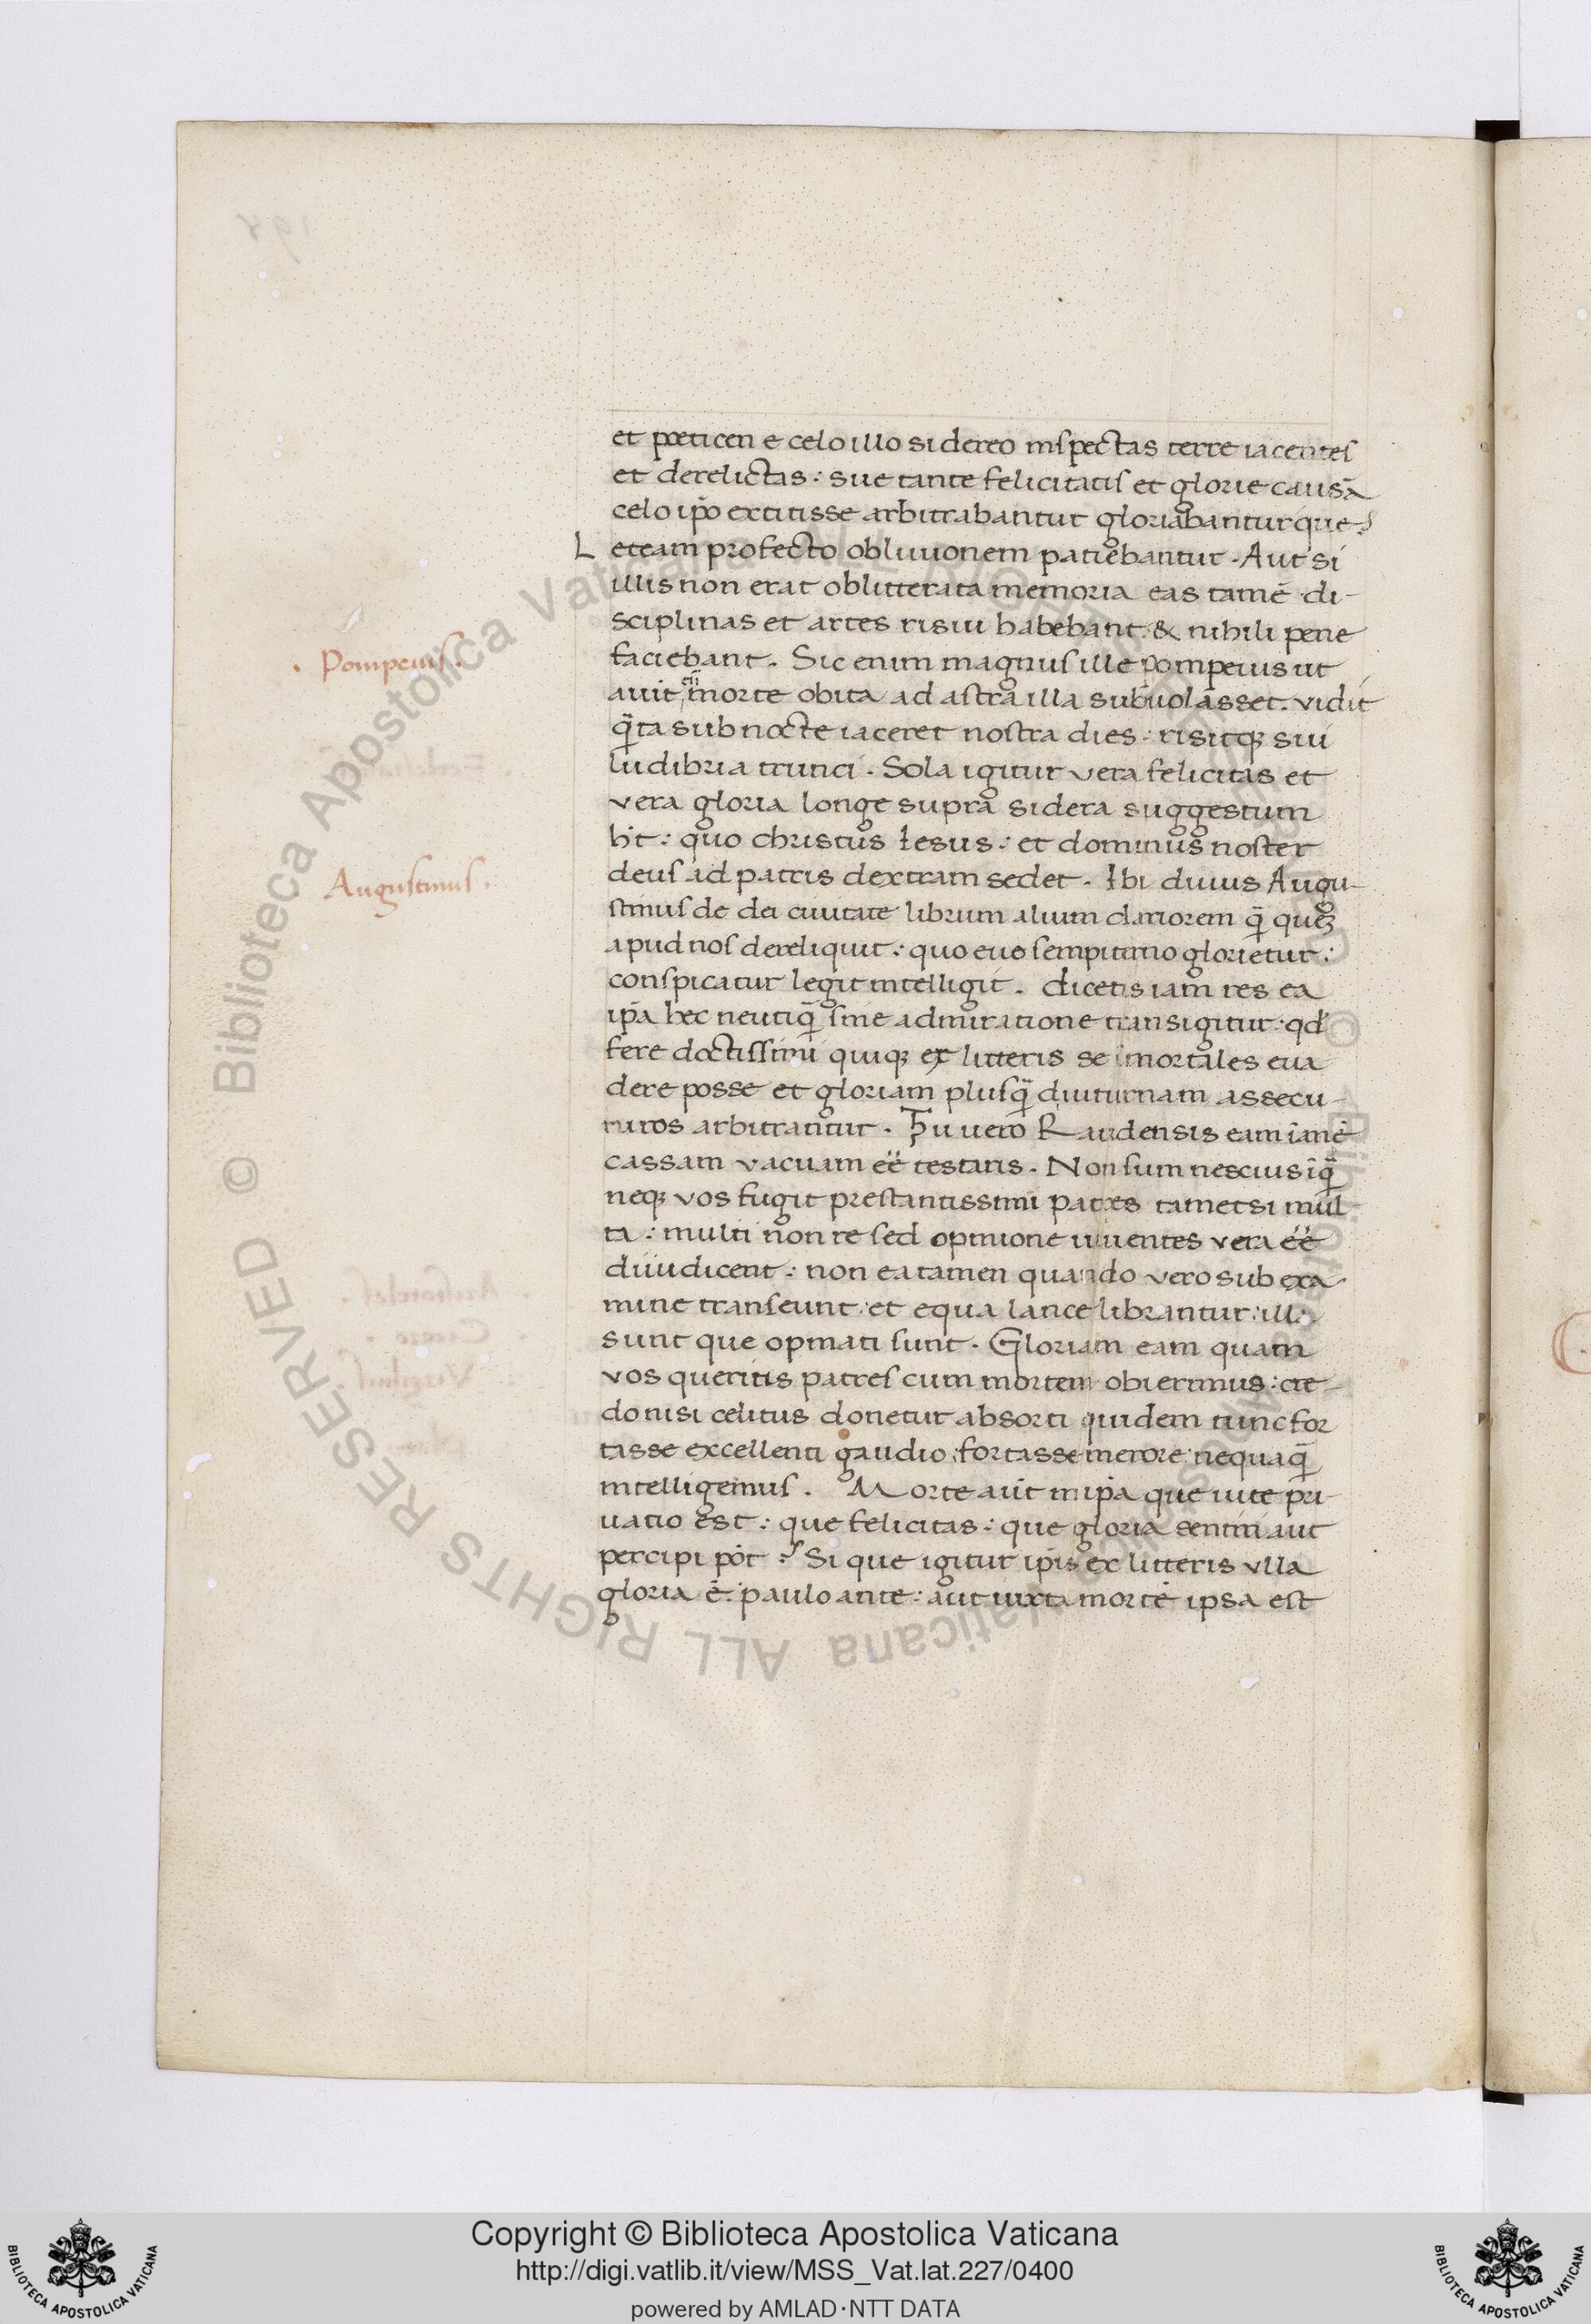 et poeticen e celo illo sidereo inspectas terre iacentes
et derelictas : sue tante felicitatis et glorie causā
celo ip̄o extitisse arbitrabantur gloriabanturque
Leteam profecto obliuionem patiebantur . Aut si
illis non erat oblitterata memoria eas tamē di-
sciplinas et artes risui habebant : & nihili pene
faciebant . Sic enim magnus ille pompeius ut
· Pompeius ·
auit morte obita ad astra illa subuolasset . vidit
q̄ta sub nocte iaceret nostra dies : risitqʒ sui
ludibria trunci . Sola igitur vera felicitas et
vera gloria longe supra sidera suggestum
ht̄ : quo christus Iesus : et dominus noster
deus ad patris dextram sedet . Ibi diuus Augu-
Augustinus ·
stinus de dei ciuitate librum alium clariorem q̄ queʒ
apud nos dereliquit : quo euo sempiterno glorietur :
conspicatur legit intelligit . dicetis iam res ea
ip̄a hec neutiq̄ sine admiratione transigitur : qd̄
fere doctissimi quiqʒ ex litteris se imortales eua
dere posse et gloriam plusq̄ diuturnam assecu-
turos arbitrantur . Tu uero Raudensis eam ianē
cassam vacuam eē testaris . Non sum nescius iq̄
neqʒ vos fugit prestantissimi patres tametsi mul
ta : multi non re sed opinione uiuentes vera eē
diiudicent : non ea tamen quando vero sub exa-
mine transeunt : et equa lance librantur : illa
sunt que opinati sunt . Gloriam eam quam
vos queritis patres cum mortem obierimus : cre-
do nisi celitus donetur absorti quidem tunc for
tasse excellenti gaudio : fortasse merore : nequaq̄
intelligemus . Morte aut̄ in ip̄a que uite pri-
uatio est : que felicitas : que gloria sentiri aut
percipi pōt ? Si que igitur ip̄is ex litteris vlla
gloria ē : paulo ante : aut iuxta mortē ipsa est
Copyright © Biblioteca Apostolica Vaticana
http://digi.vatlib.it/view/MSS_Vat.lat.227/0400
powered by AMLAD·NTT DATA
BIBLIOTECA APOSTOLICA VATICANA
BIBLIOTECA APOSTOLICA VATICANA
© Biblioteca Apostolica Vaticana ALL RIGHTS RESERVED